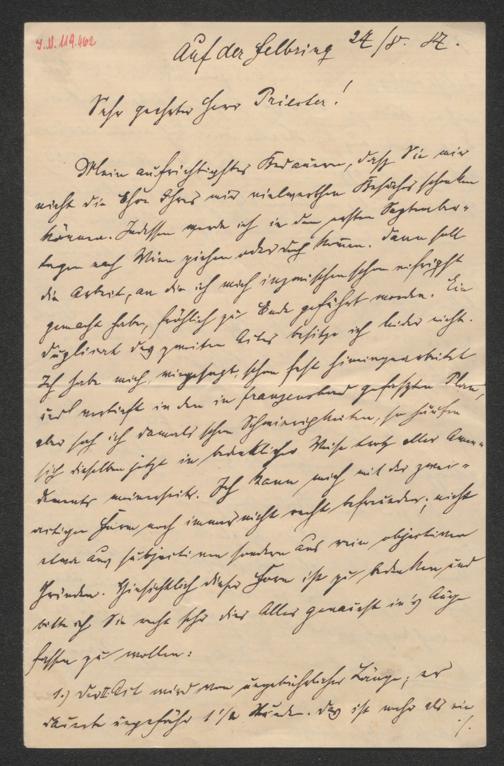 I.N. 119.462
Auf der Helbring 24/8. 87.
Sehr geehrter Herr Priester!
Mein aufrichtigstes Bedauern, daß Sie mir
nicht die Ehre Ihres mir vielwerthen Besuches schenken
können. Indessen werde ich in den ersten September-
tagen nach Wien ziehen oder doch kommen. Dann soll
die Arbeit, an die ich mich inzwischen schon eifrigst
gemacht habe, fröhlich zu Ende geführt werden. Ein
Duplicat des zweiten Aktes besitze ich leider nicht.
Ich habe mich, wie gesagt, schon fest hineingearbeitet
und vertieft in den in Franzensbad gefaßten Plan,
aber sah ich damals schon Schwierigkeiten, so häufen
sich dieselben jetzt in bedenklicher Weise trotz aller
meinerseits. Ich kann mich mit der zwei-
aktigen Form noch immer nicht recht befreunden; nicht
etwa aus subjectiven sondern aus rein objectiven
Gründen. Hinsichtlich dieser Form ist zu bedenken und
bitte ich Sie recht sehr dies Alles genauest in's Auge
fassen zu wollen:
1.) Der II Akt wird von ungebührlicher Länge; er
dauerte ungefähr 1 1/2 Stunden. Das ist mehr als ein
./.